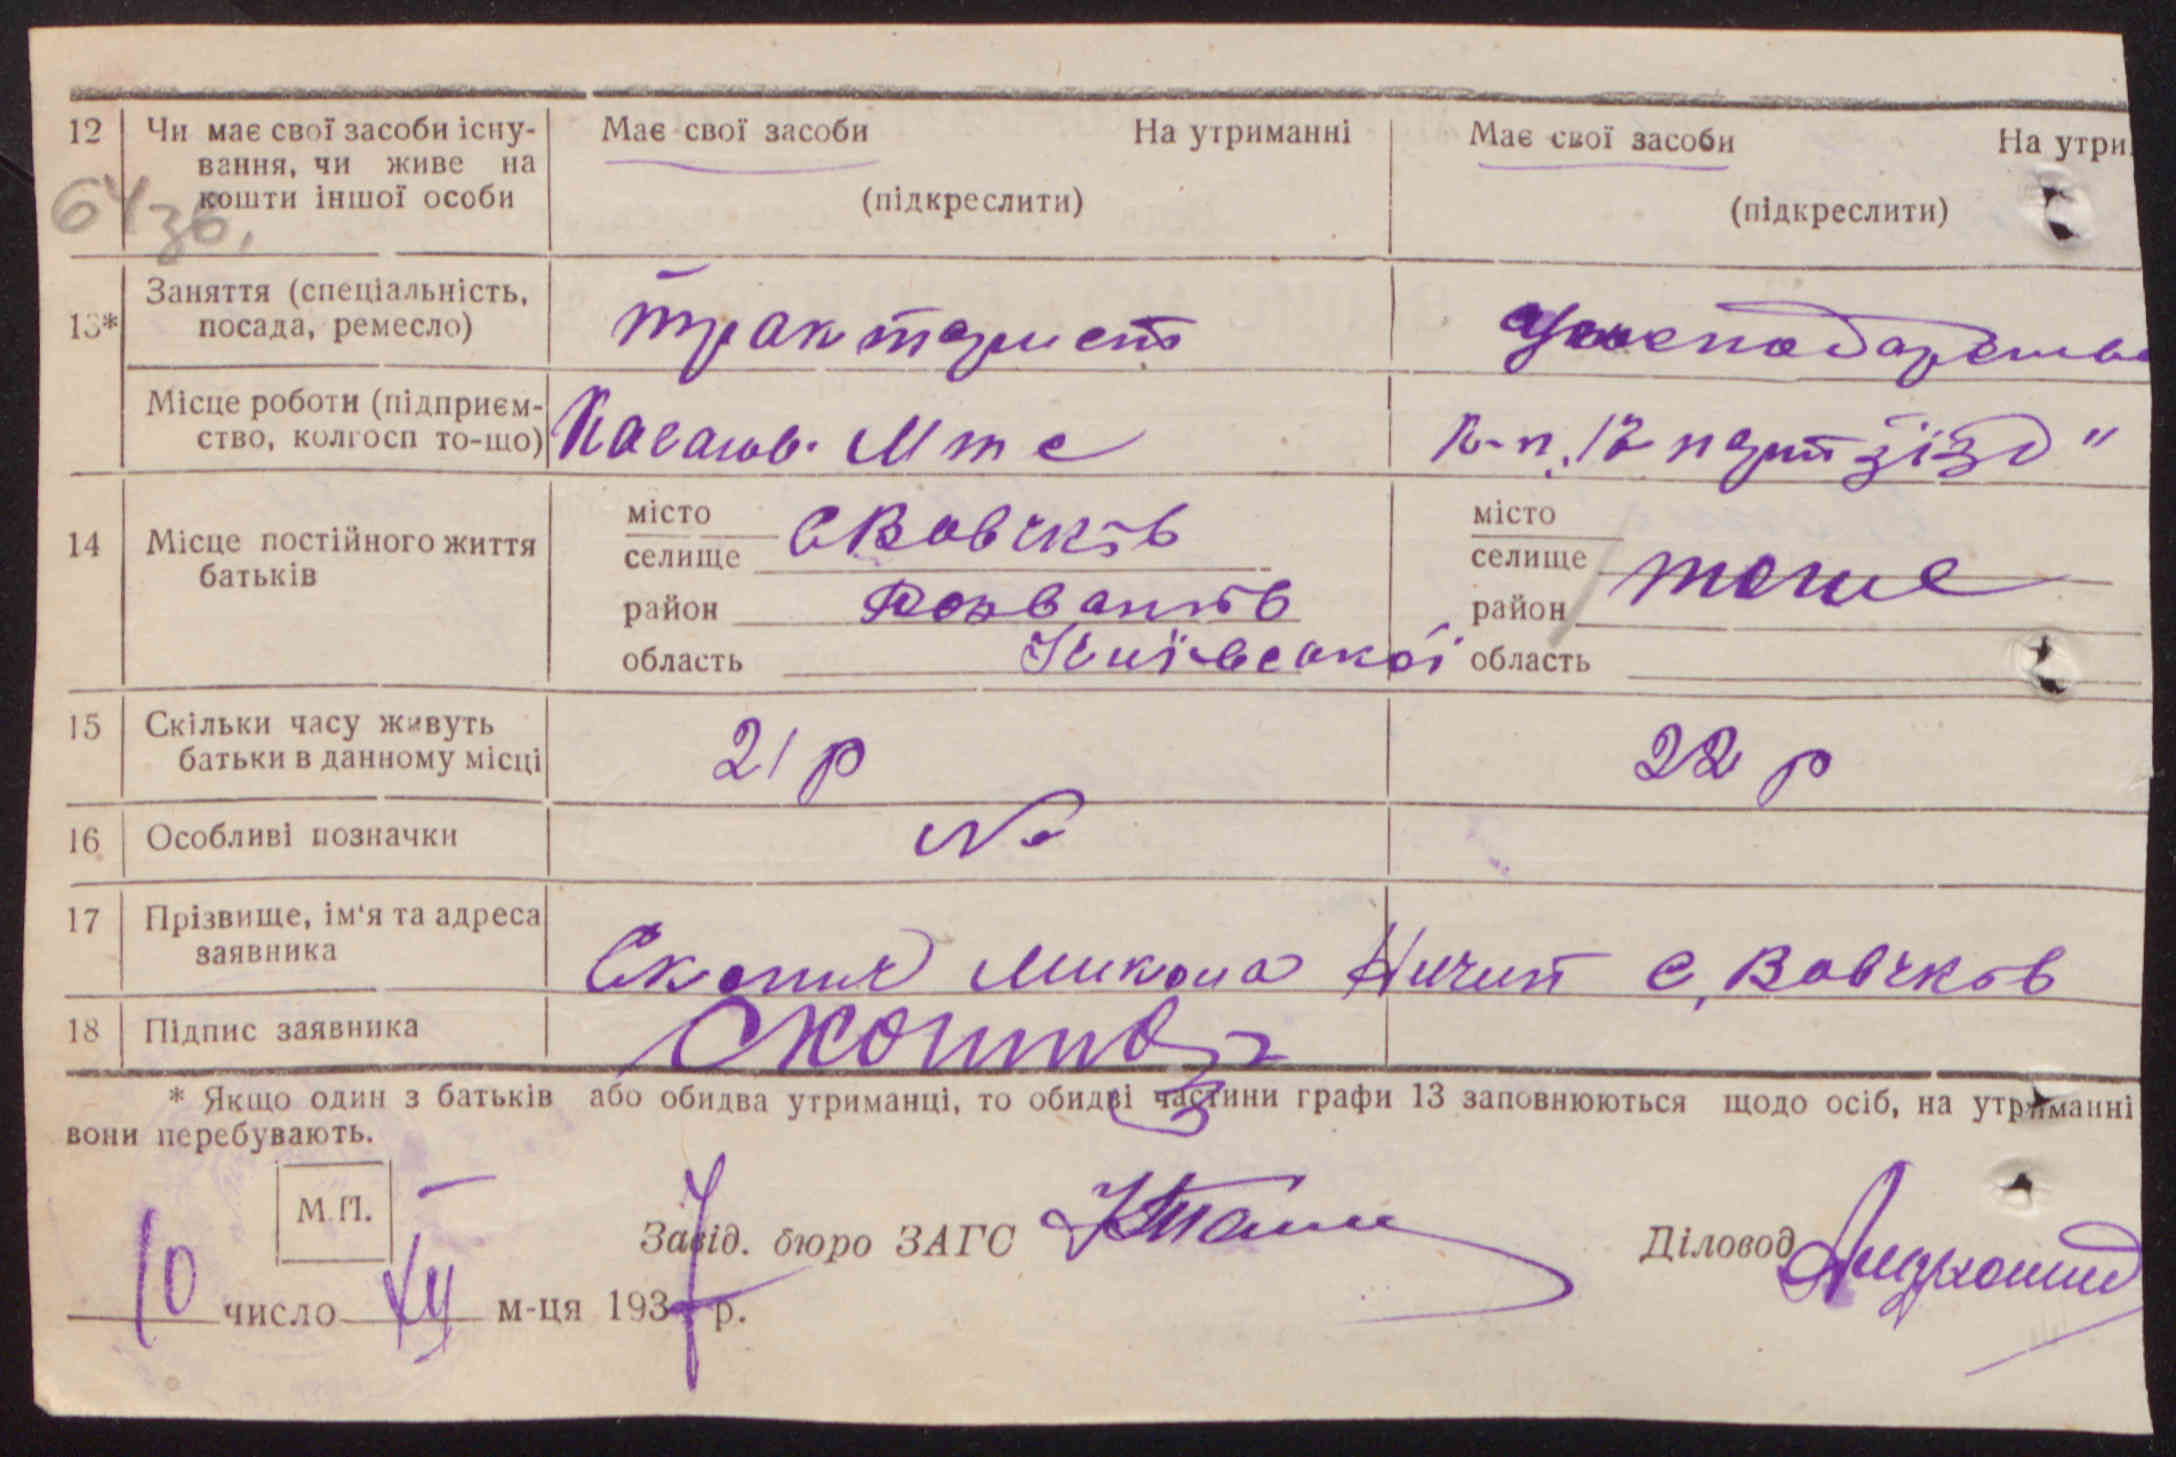 12 Чи має свої засоби існу-
вання, чи живе на
кошти іншої особи
Має свої засоби На утриманні
(підкреслити)
Має свої засоби На утри
(підкреслити)
64зб.
13* Заняття (спеціальність,
посада, ремесло)
тракторист
Місце роботи (підприєм-
ство, колгосп то-що)
Мтс
з'їзд"
14 Місце постійного життя
батьків
місто
селище
с Вовчків
район
область Київської
місто
селище
тоже
район
область
15 Скільки часу живуть
батьки в данному місці
21 р
22 р
16 Особливі позначки
17 Прізвище, ім'я та адреса
заявника
Микола Ничип с. Вовчків
18 Підпис заявника
* Якщо один з батьків або обидва утриманці, то обидві частини графи 13 заповнюються щодо осіб, на утриманні
вони перебувають.
М.П.
Завід. бюро ЗАГС
Діловод
10 число XII м-ця 1937 р.